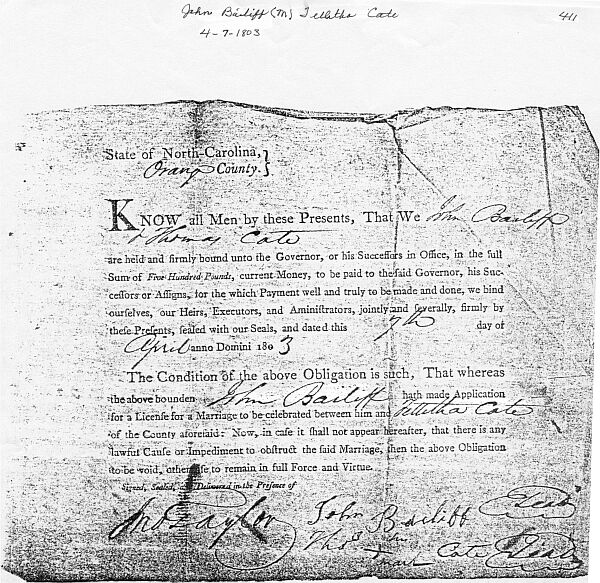 John Bailiff (M) Tellitha Cate 411
4-7-1803
State of North-Carolina, }
Orange County. }
KNOW all Men by these Presents, That We John Bailiff
& Thomas Cate
are held and firmly bound unto the Governor, or his Succeſſors in Office, in the full
Sum of Five Hundred Pounds, current Money, to be paid to the ſaid Governor, his Suc-
ceſſors or Aſſigns, for the which Payment well and truly to be made and done, we bind
ourſelves, our Heirs, Executors, and Aminiſtrators, jointly and ſeverally, firmly by
theſe Preſents, ſealed with our Seals, and dated this 7th day of
April anno Domini 180 3
The Condition of the above Obligation is ſuch, That whereas
the above bounden John Bailiff hath made Application
for a Licenſe for a Marriage to be celebrated between him and Tellitha Cate
of the County aforeſaid: Now, in caſe it ſhall not appear hereafter, that there is any
lawful Cauſe or Impediment to obſtruct the ſaid Marriage, then the above Obligation
to be void, otherwiſe to remain in full Force and Virtue.
Signed, Sealed, & Delivered in the Preſence of
Jno Taylor
John Bailiff (Seal)
his
Thos Cate (Seal)
mark